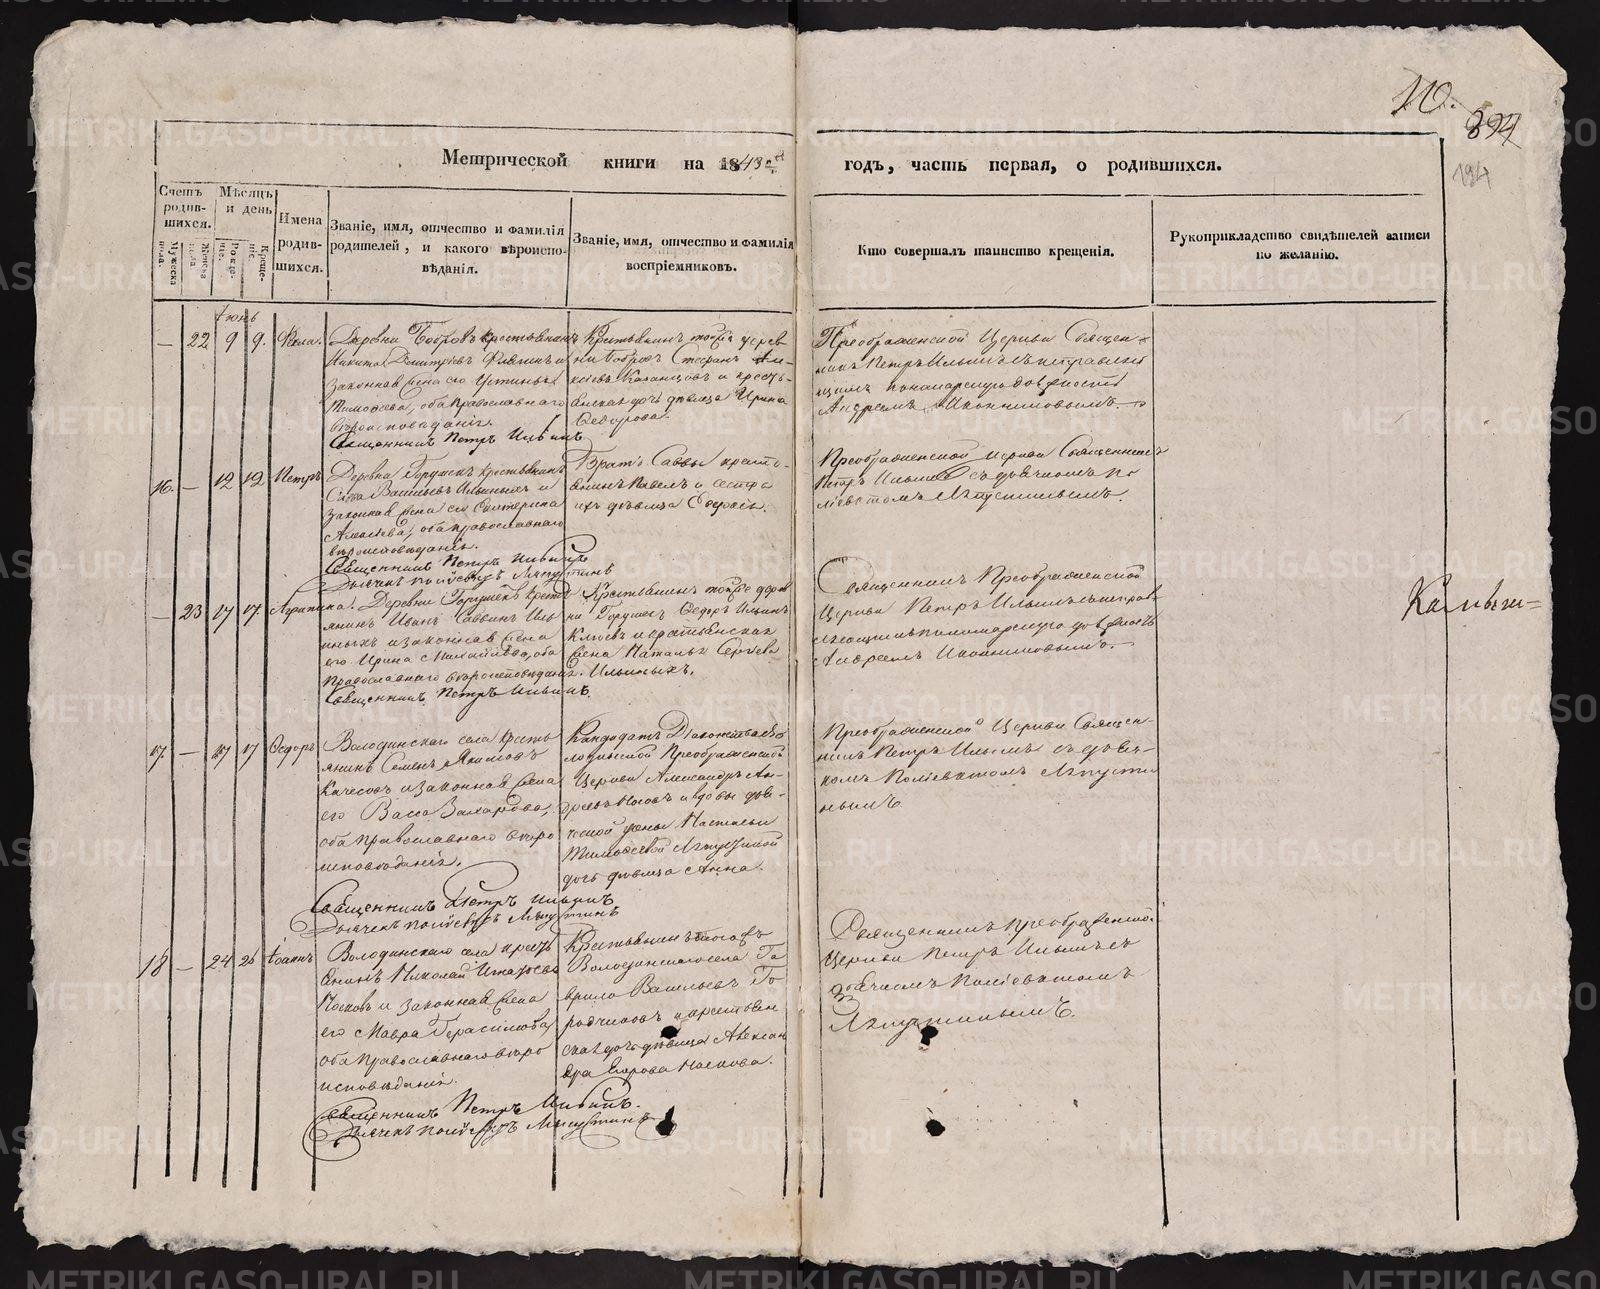 110.
394
194
Метрической книги на 1843й годъ, часть первая, о родившихся.
Счетъ родив-шихся.
Мужеска пола.
Женска пола.
Мѣсяцъ и день
Рожде-нiе.
Креще-нiе.
Имена родив-шихся.
Званiе, имя, отчество и фамилiя родителей, и какого вѣроиспо-вѣданiя.
Званiе, имя, отчество и фамилiя воспрiемниковъ.
Кто совершалъ таинство крещенiя.
Рукоприкладство свидѣтелей записи по желанiю.
Iюнь
— 22 9 9. Фекла.
Деревни Бобровъ крестьянинъ
Никита Дмитрiевъ
законная жена его Устинья
Тимофеева, оба православнаго
вѣроисповѣданiя.
Священникъ Петръ Ильинъ
Крестьянинъ тойже дерев-
ни Бобровъ Стефанъ Але-
ксѣевъ Казанцовъ и кресть-
янская дочь дѣвица Ирина
Федорова.
Преображенской Церкви Священ-
никъ Петръ Ильинъ съ исправляю-
щимъ пономарскую должность
Андреемъ Иконниковымъ.
16. — 12 12 Петръ
Деревни Горушекъ крестьянинъ
Савва Васильевъ Ильиныхъ и
законная жена его Екатерина
оба православнаго
вѣроисповѣданiя.
Священникъ Петръ Ильинъ
Дьячекъ Полiевктъ Ляпустинъ
Братъ Саввы кресть-
янинъ Павелъ и сестра
ихъ дѣвица Федосья.
Преображенской церкви Священникъ
Петръ Ильинъ съ дьячкомъ По-
лiевктомъ Ляпустинымъ.
— 23 17 17. Агрипина.
Деревни Горушекъ кресть-
янинъ Иванъ Саввинъ Иль-
иныхъ и законная жена
его Ирина Михайлова, оба
православнаго вѣроисповѣданiя.
Священникъ Петръ Ильинъ.
Крестьянинъ тойже дерев-
ни Горушекъ Федоръ Ильинъ
Клюевъ и крестьянская
жена Наталья Сергѣева
Ильиныхъ.
Священникъ Преображенской
Церкви Петръ Ильинъ съ исправ-
ляющимъ пономарскую должность
Андреемъ Иконниковымъ.
17. — 17 17 Федоръ
Володинскаго села кресть-
янинъ Семенъ Якимовъ
Качесовъ и законная жена
его Васса Захарова,
оба православнаго вѣро-
исповѣданiя.
Священникъ Петръ Ильинъ
Дьячекъ Полiевктъ Ляпустинъ
Кандидатъ Дiаконства Во-
лодинской Преображенской
Церкви Александръ Ан-
дреевъ Носовъ и вдовы дья-
ческой жены Настасьи
Тимофеевой Ляпустиной
дочь дѣвица Анна.
Преображенской Церкви Священ-
никъ Петръ Ильинъ съ дьяч-
комъ Полiевктомъ Ляпусти-
нымъ
18 — 24 26 Iоаннъ
Володинскаго села кресть-
янинъ Николай Игнатьевъ
Носковъ и законная жена
его Мавра Герасимова,
оба православнаго вѣро-
исповѣданiя.
Священникъ Петръ Ильинъ.
Дьячекъ Полiевктъ Ляпустинъ
Крестьянинъ тогожъ
Володинскаго села Га-
врило Васильевъ Го-
родчиковъ и крестьян-
ская дочь дѣвица Алексан-
дра Егорова Носкова.
Священникъ Преображенской
Церкви Петръ Ильинъ съ
дьячкомъ Полiевктомъ
Ляпустинымъ.
METRIKI.GASO-URAL.RU